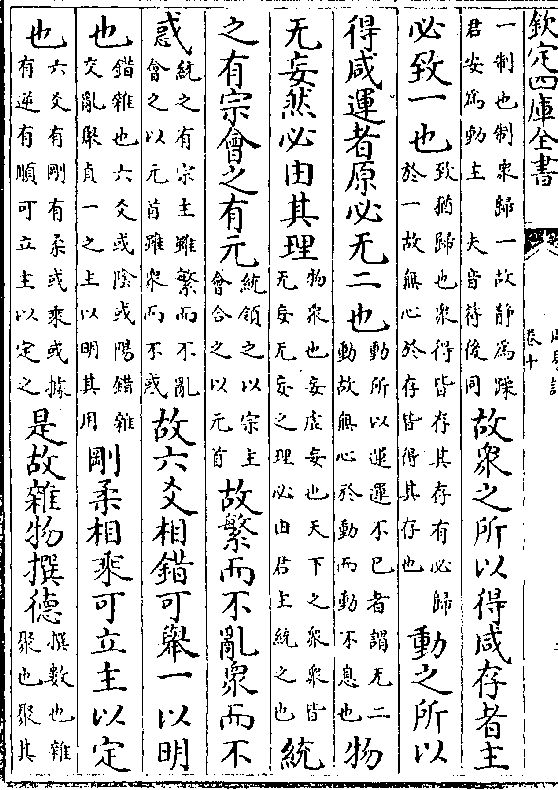 欽定四庫全書
卷十
一制也制衆歸一故靜為躁君安為動主 夫音符後同故衆之所以得咸存者主
必致一也致猶歸也衆得皆存其存有必歸於一故無心於存皆得其存也動之所以
得咸運者原必无二也動所以運運不已者謂无二動故無心於動而動不息也物
无妄然必由其理物衆也妄虛妄也天下之衆衆皆无妄无妄之理必由君主統之也統
之有宗會之有元統領之以宗主會合之以元首故繁而不亂衆而不
惑統之有宗主雖繁而不亂會之以元首雖衆而不惑故六爻相錯可舉一以明
也錯雜也六爻或陰或陽錯雜交亂聚貞一之主以明其用剛柔相乘可立主以定
也六爻有剛有柔或乘或據有逆有順可立主以定之是故雜物撰德撰數也雜聚也聚其